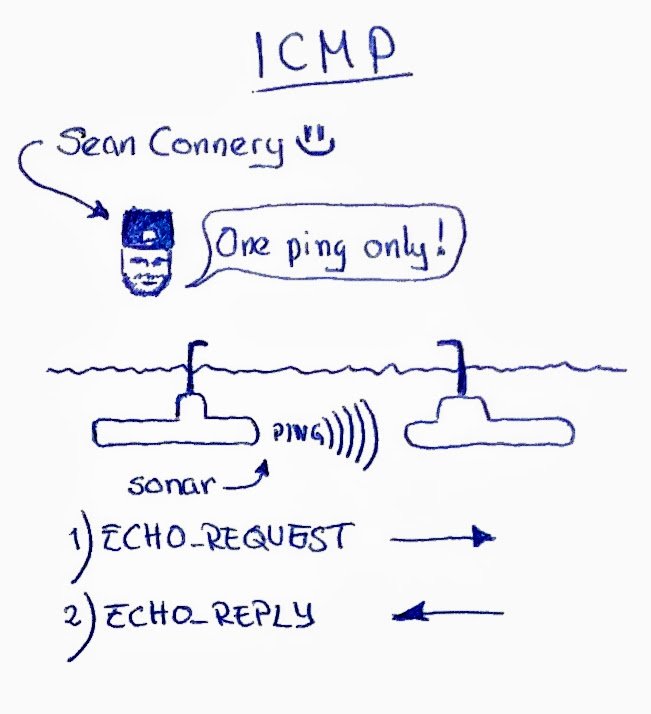 ICMP
Sean Connery
One ping only!
PING
sonar
1) ECHO_REQUEST
2) ECHO_REPLY